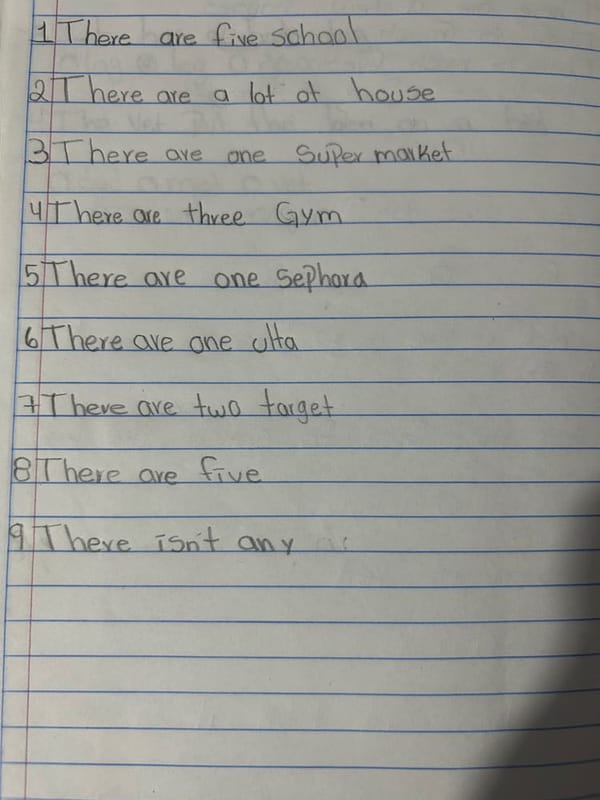 1 There are five school
2 There are a lot of house
3 There are one Super market
4 There are three Gym
5 There are one Sephora
6 There are one ulta
7 There are two target
8 There are five
9 There isn't any